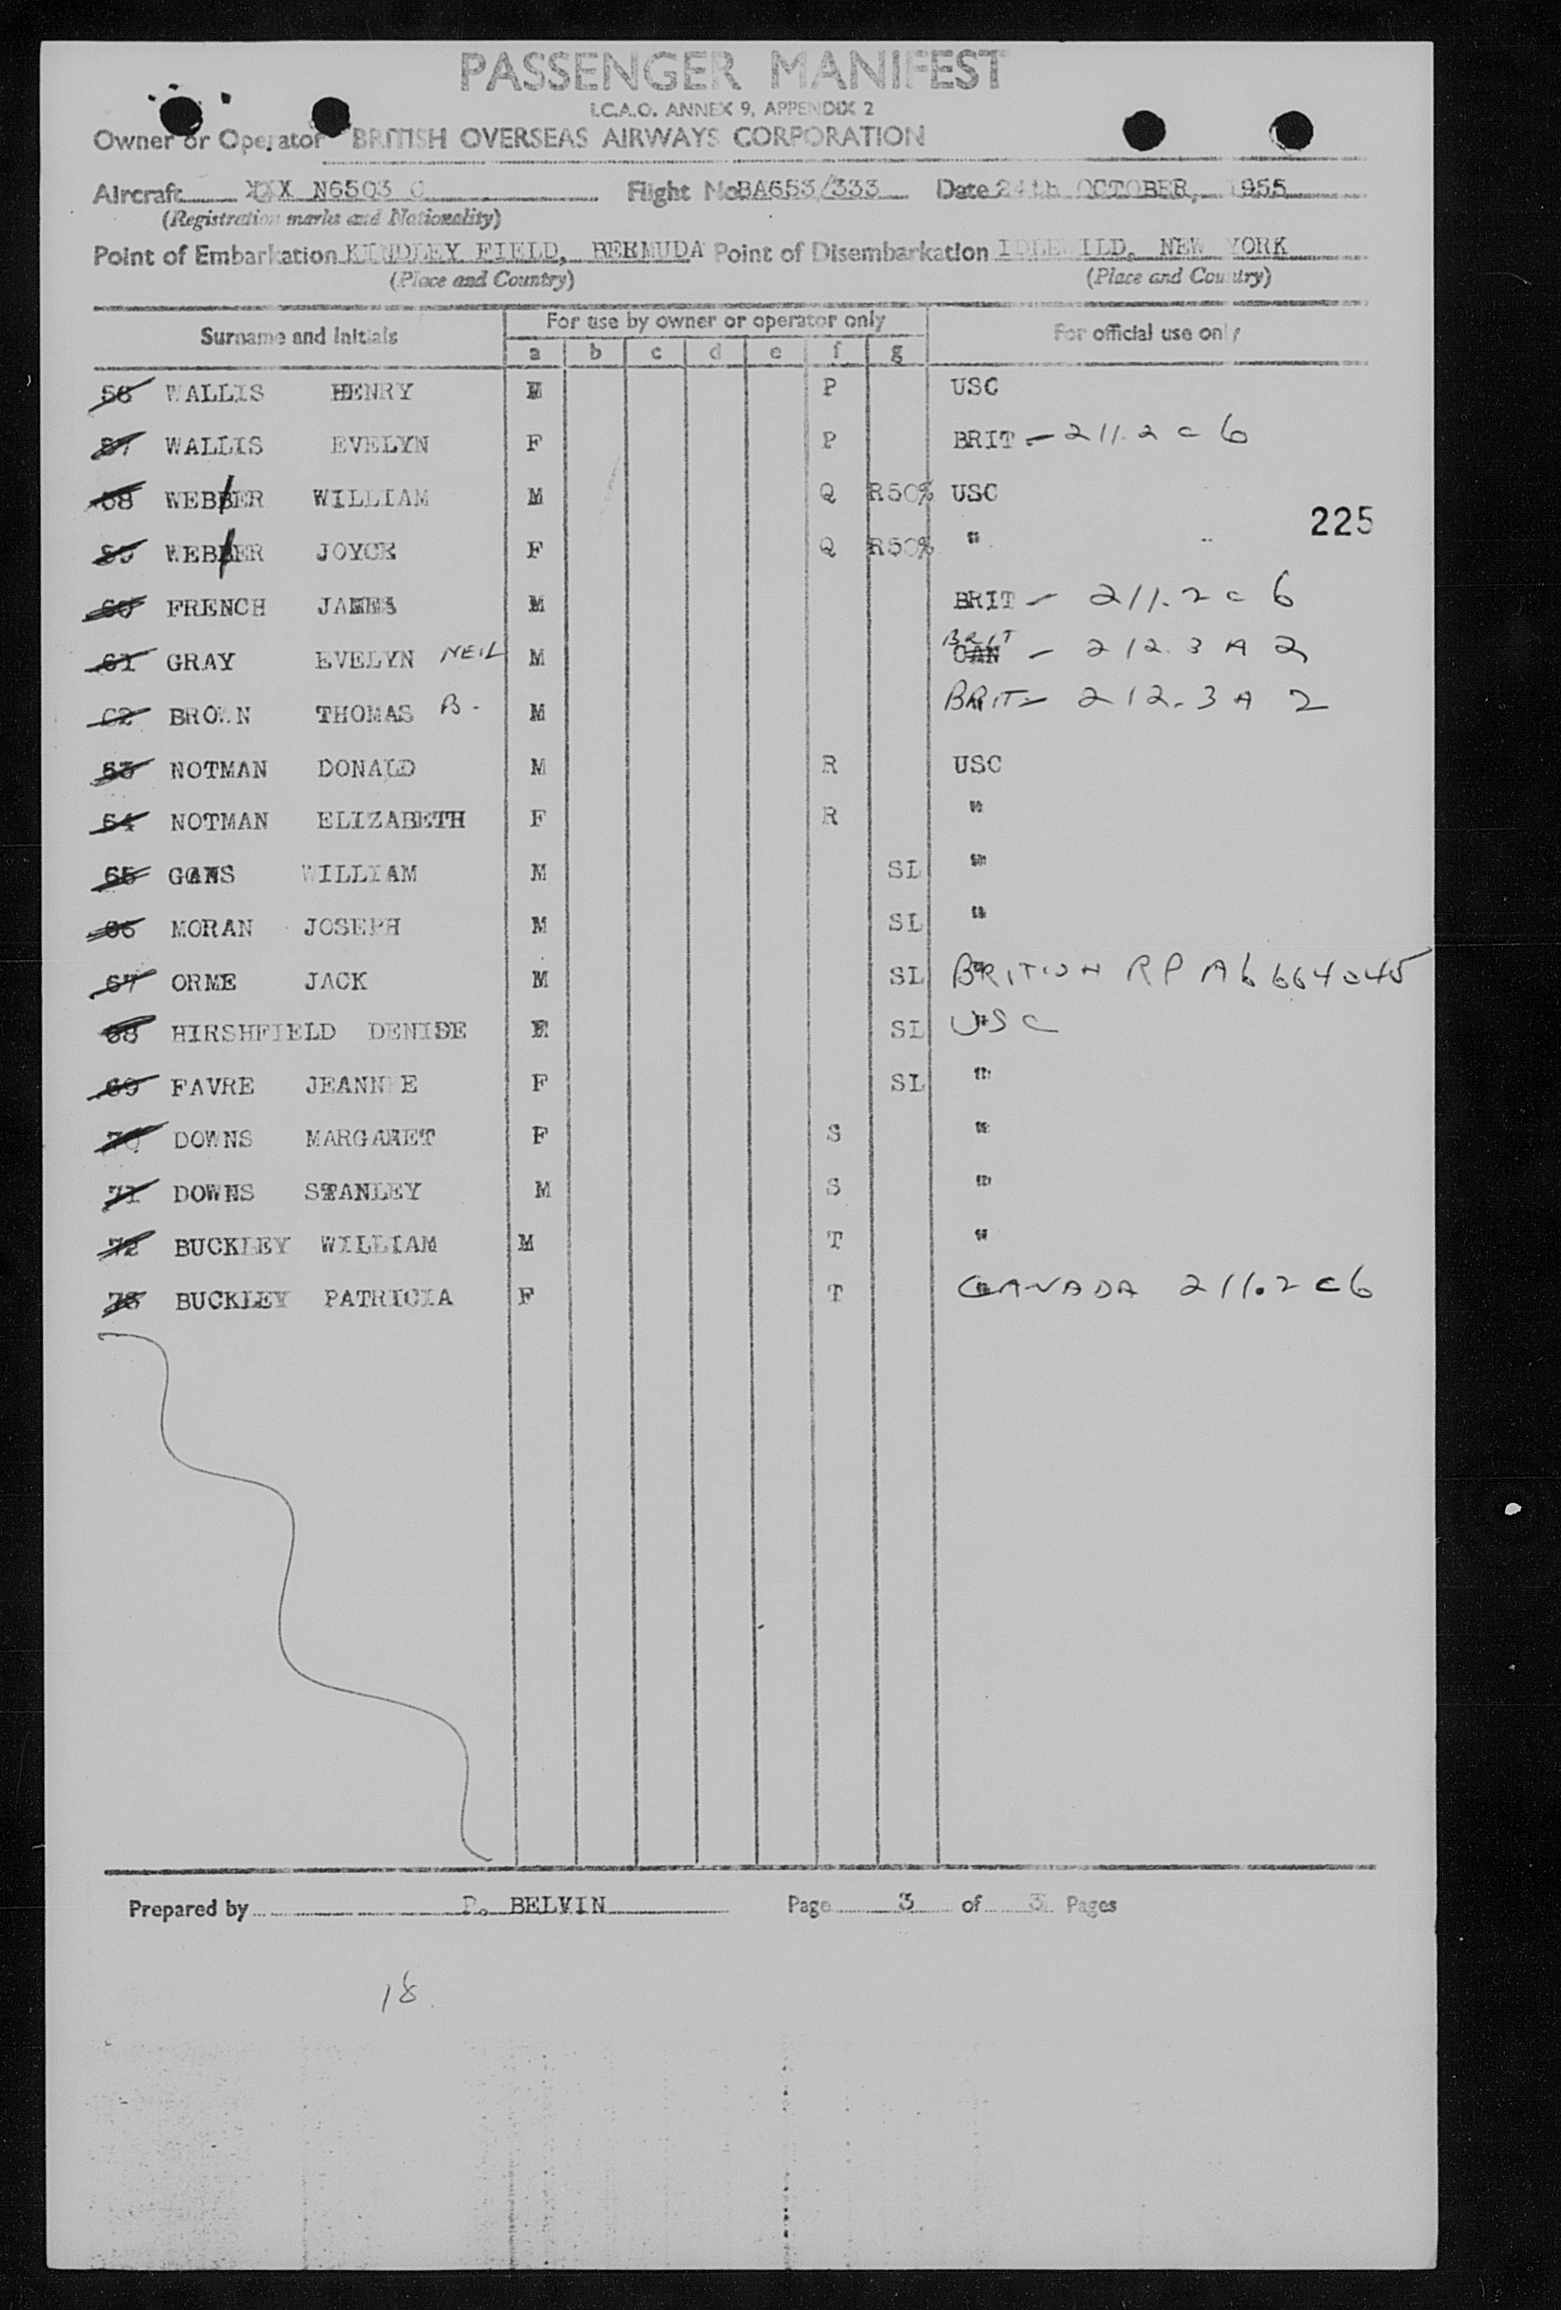 PASSENGER MANIFEST
I.C.A.O. ANNEX 9, APPENDIX 2
Owner or Operator BRITISH OVERSEAS AIRWAYS CORPORATION
Aircraft XXX N6503 C Flight No. BA653/333 Date 24th OCTOBER, 1955
(Registration marks and Nationality)
Point of Embarkation KINDLEY FIELD, BERMUDA Point of Disembarkation IDLEWILD, NEW YORK
(Place and Country) (Place and Country)
Surname and Initials For use by owner or operator only For official use only
a b c d e f g
56 WALLIS HENRY M P USC
57 WALLIS EVELYN F P BRIT - 211.2 c 6
58 WEBBER WILLIAM M Q R50% USC
225
59 WEBBER JOYCE F Q R50% "
60 FRENCH JAMES M BRIT - 211.2 c 6
61 GRAY EVELYN NEIL M BRIT CAN - 212.3 A 2
62 BROWN THOMAS B. M BRIT - 212.3 A 2
63 NOTMAN DONALD M R USC
64 NOTMAN ELIZABETH F R "
65 WILLIAM M SL "
66 MORAN JOSEPH M SL "
67 ORME JACK M SL BRITISH RP A6664045
68 HIRSHFIELD DENISE F SL USC
69 FAVRE JEANNE F SL "
70 DOWNS MARGARET F S "
71 DOWNS STANLEY M S "
72 BUCKLEY WILLIAM M T "
73 BUCKLEY PATRICIA F T CANADA 211.2 c 6
Prepared by P. BELVIN Page 3 of 3 Pages
18